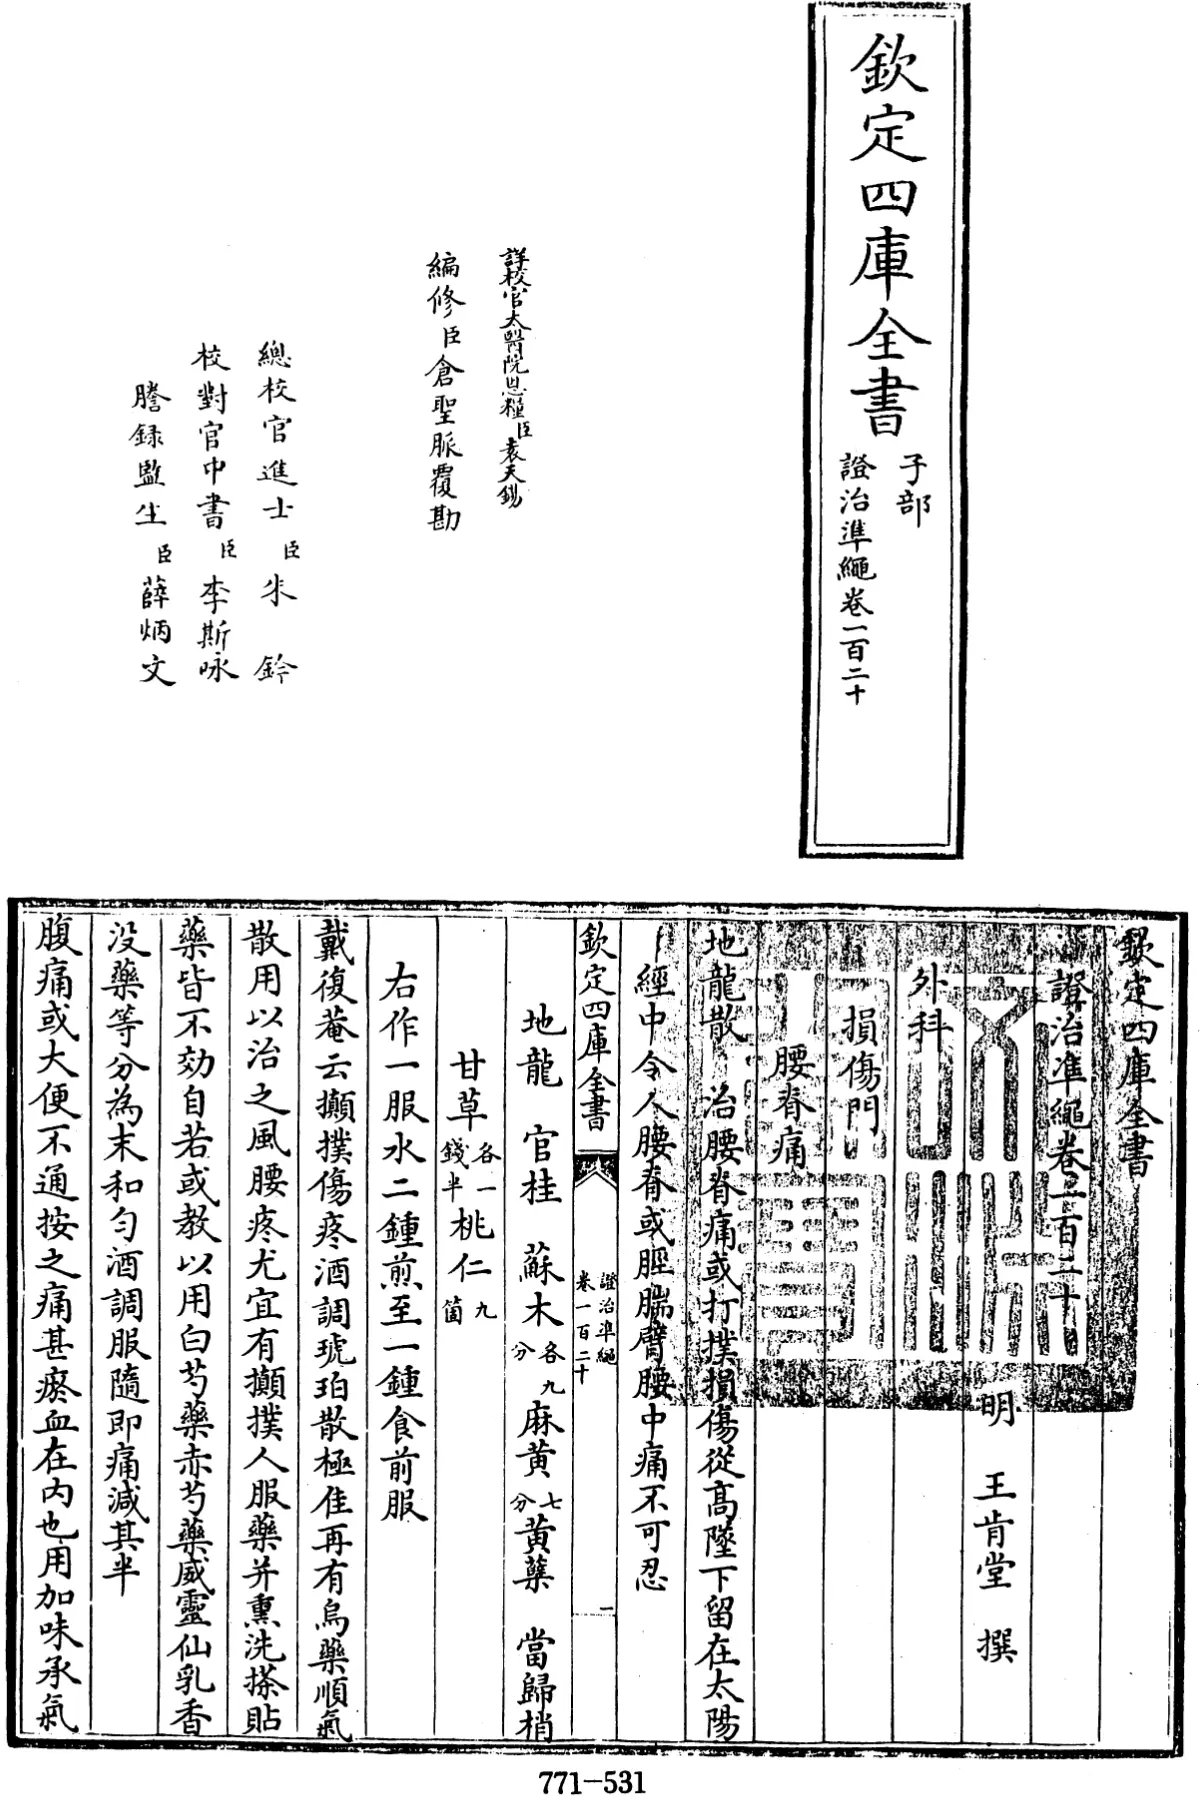 欽定四庫全書
子部
證治準繩卷一百二十
詳校官太醫院恩糧臣袁天錫
編修臣倉聖脈覆勘
總校官進士臣朱鈐
校對官中書臣李斯咏
謄録監生臣薛炳文
欽定四庫全書
證治準繩卷一百二十
明 王肯堂 撰
外科
損傷門
腰脊痛
地龍散 治腰脊痛或打撲損傷從髙墜下留在太陽
經中令人腰脊或脛腨臂腰中痛不可忍
欽定四庫全書
證治準繩
卷一百二十
一
地龍 官桂 蘇木各九分麻黄七分黄蘗 當歸梢
甘草各一錢半桃仁九箇
右作一服水二鍾煎至一鍾食前服
戴復菴云攧撲傷疼酒調琥珀散極佳再有烏藥順氣
散用以治之風腰疼尤宜有攧撲人服藥并熏洗搽貼
藥皆不効自若或教以用白芍藥赤芍藥威靈仙乳香
没藥等分為末和勻酒調服隨即痛減其半
腹痛或大便不通按之痛甚瘀血在内也用加味承氣
771-531